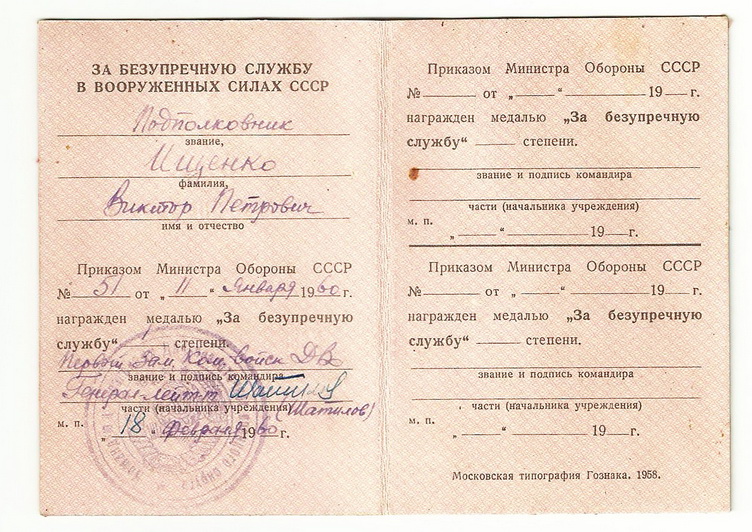 ЗА БЕЗУПРЕЧНУЮ СЛУЖБУ
В ВООРУЖЕННЫХ СИЛАХ СССР
Подполковник
звание,
Ищенко
фамилия,
Виктор Петрович
имя и отчество
Приказом Министра Обороны СССР
№ 51 от „11“ Января 1960 г.
награжден медалью „За безупречную
службу“ степени.
Первый Зам. Ком. Войск ДВО
звание и подпись командира
Генерал-лейт-т Шатилов
части (начальника учреждения) (Шатилов)
м. п. „18“ Февраля 1960 г.
Приказом Министра Обороны СССР
№ от „ “ 19 г.
награжден медалью „За безупречную
службу“ степени.
звание и подпись командира
части (начальника учреждения)
м. п.
„ “ 19 г.
Приказом Министра Обороны СССР
№ от „ “ 19 г.
награжден медалью „За безупречную
службу“ степени.
звание и подпись командира
части (начальника учреждения)
м. п.
„ “ 19 г.
Московская типография Гознака. 1958.